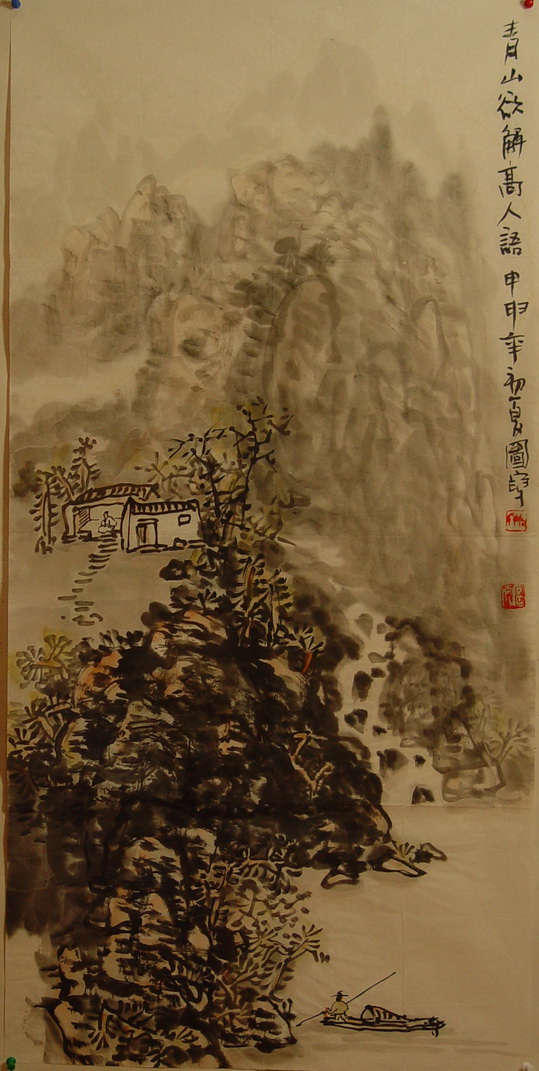 青山欲解高人語 申年初夏圖